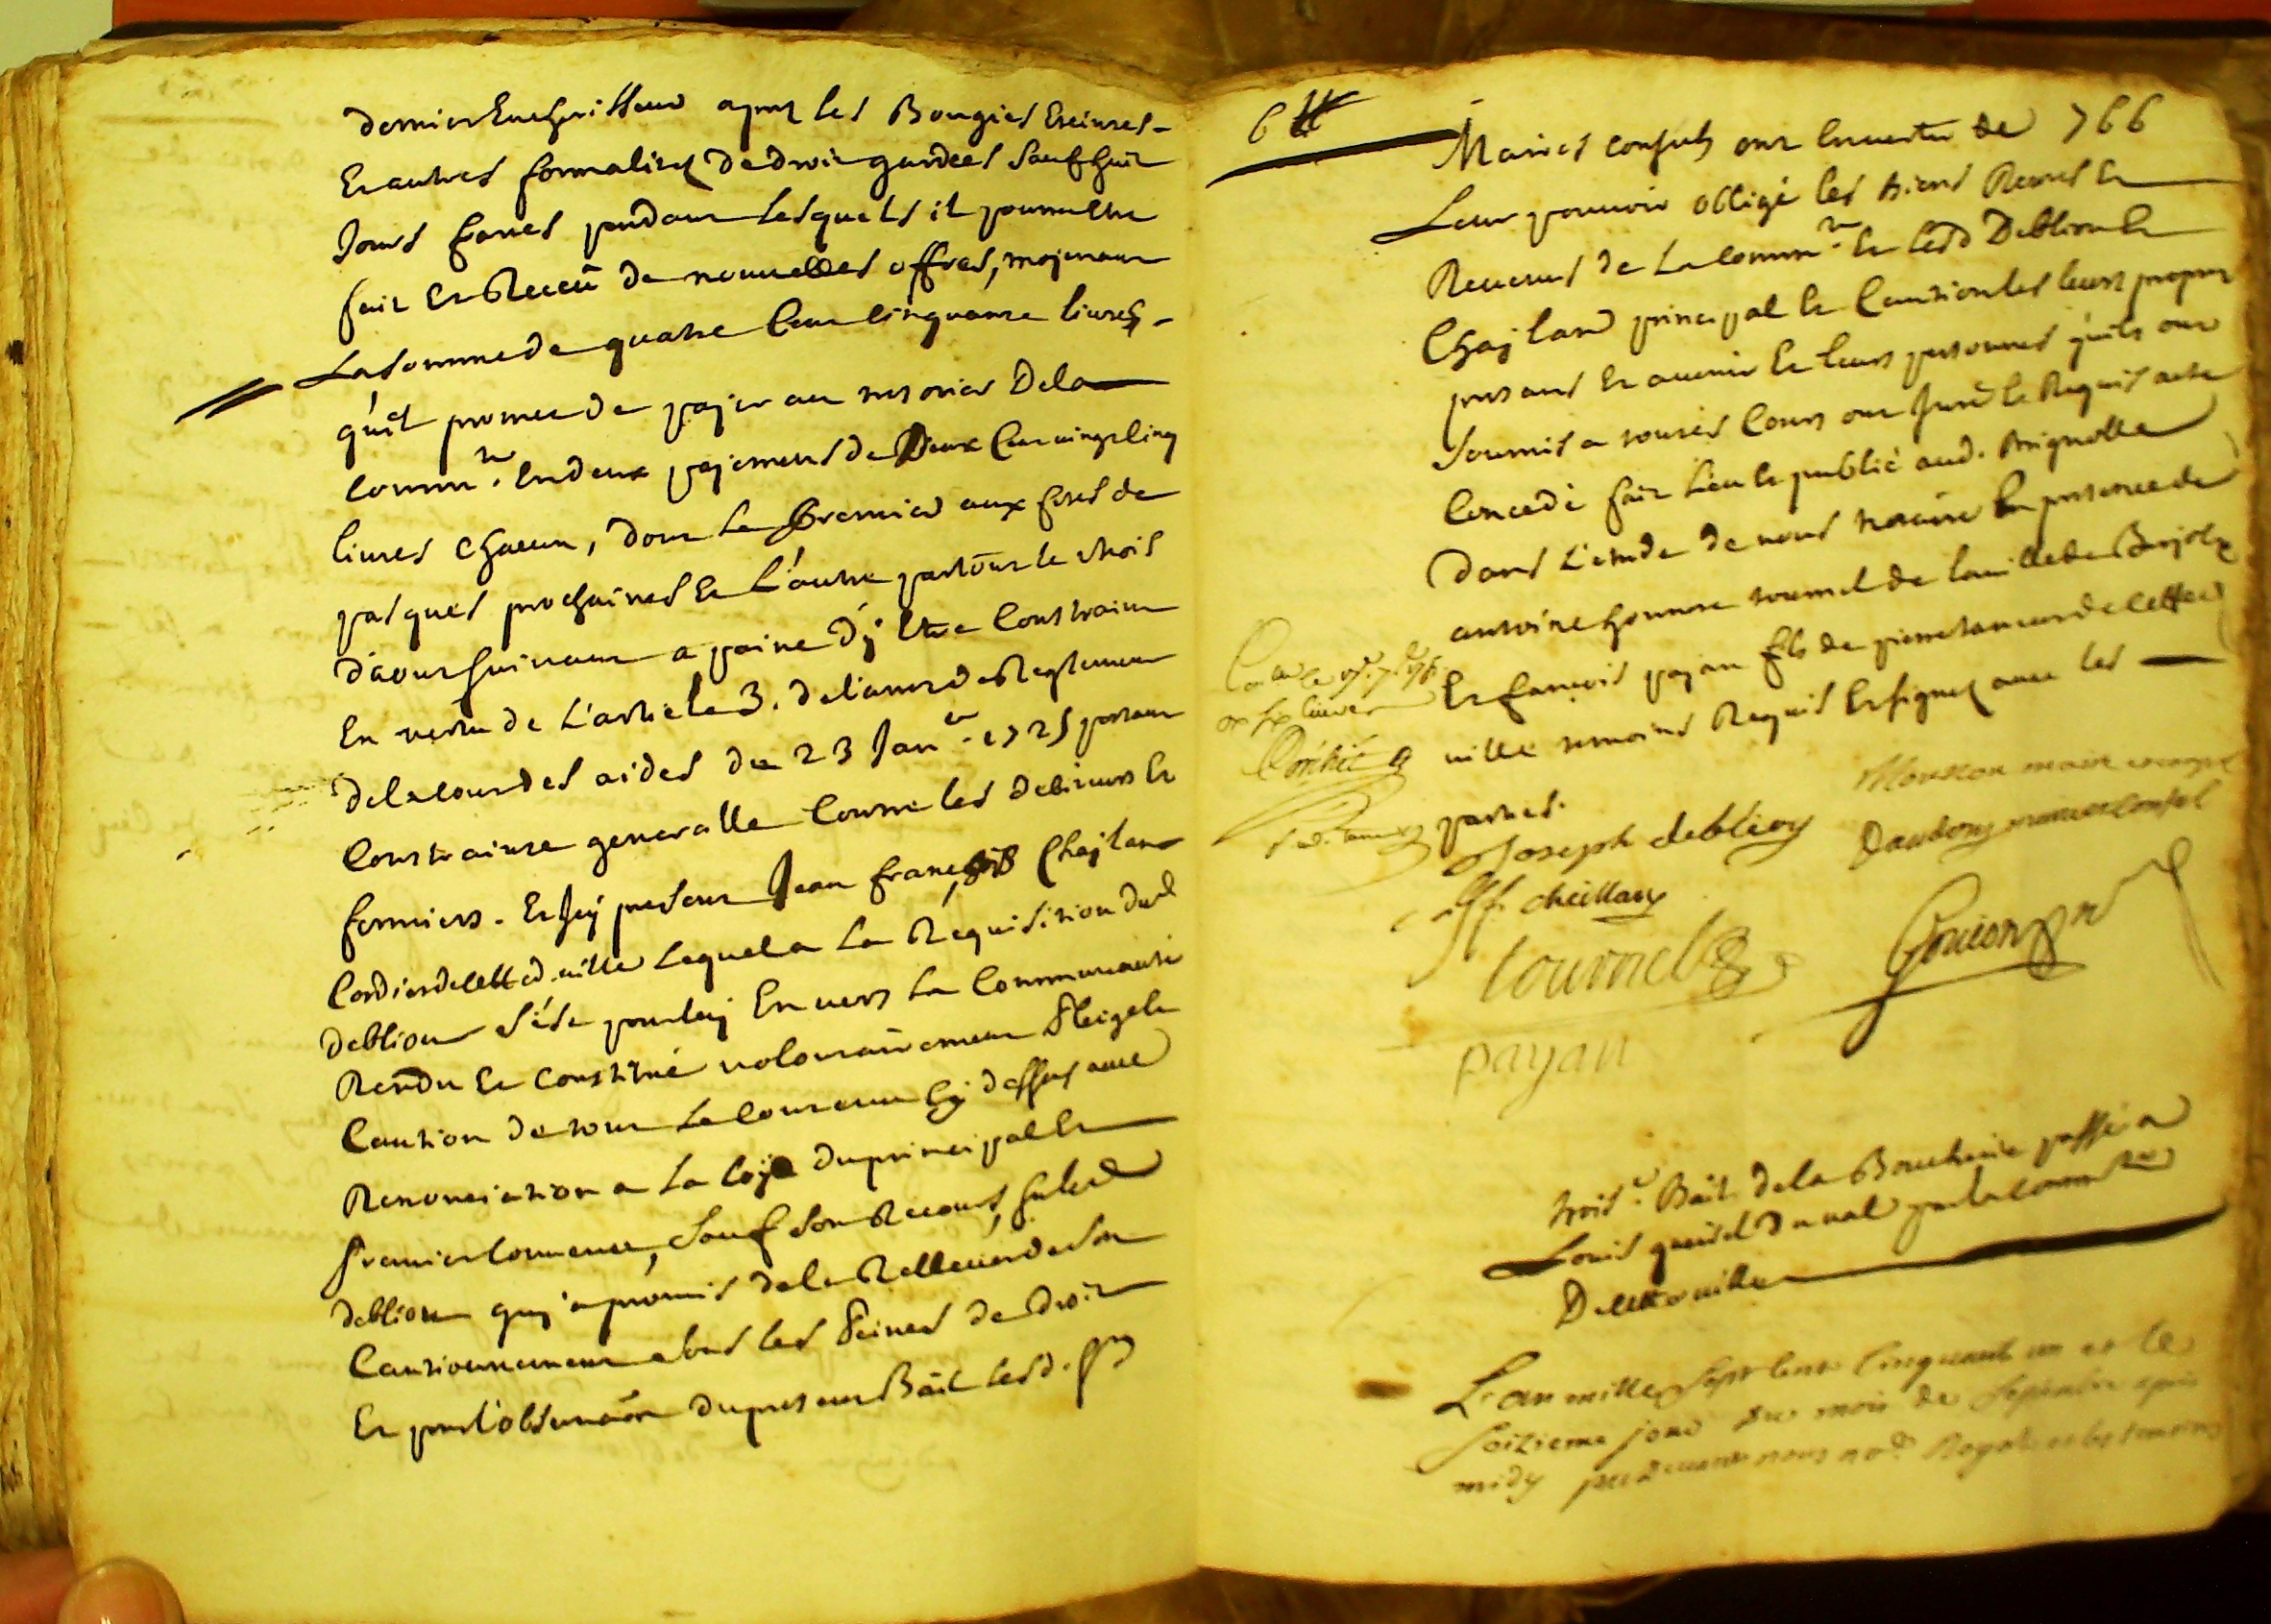 dernier Encherisseur apres les Bougies Eteintes
Et autres formalités de droit gardées Sauf huit
Jours francs pendant lesquels il pourra Etre
fait Et Receu de nouvelles offres, mojenant
La somme de quatre Cent Cinquante livres
qu'il promet de pajer au tresorier De la
Commté. En deux pajements de Deux Cent vingt cinq
livres chacun, dont Le premier aux fetes de
pasques prochaines Et L'autre partout le mois
d'aout suivant a paine d'y Etre Constraint
En vertu de L'article 3. de l'arret de Reglement
de la cour des aides du 23 Janer. 1725 portant
Constrainte generalle Contre les debiteurs Et
fermiers. Et Icy present Jean françois Chajlan
Cordier de cette d. ville Lequel a La Requisition dud
deblieu s'est pour luy Envers La Communauté
Rendu Et constitué volontairement pleige Et
Caution de tout Le Contenu Cy dessus avec
Renonciation a La loy du principal Et
premier Convenu, Sauf son Recours, sur led
deblieu quy a promis de le Rellever de Son
Cautionnement sous les Peines de droit
Et pour l'observaon du present Bail lesd. srs
6 ₶
766
Maires consuls ont En vertu de
Leur pouvoir obligé les biens Rentes Et
Revenus de La Commté. Et lesd Deblieu Et
Chajlan principal Et Caution les leurs propres
presents Et avenir Et leurs personnes qu'ils ont
soumis a toutes Cours ont Juré Et Requis acte
Concedé fait Leu Et publié aud. Brignolle
Dans L'etude de nous notaire En presence de
antoine honnoré tournel de la ville de Barjols
Et françois pajan fils de pierre tanneur de cette d
ville temoins Requis Et signés avec les
parties.
Controllé a
Joseph deblieu
Mouton maire consul
J f. cheillan
Dandon premier Consul
tournel
payan
trois. Bail de la Boucherie passé a
Louis par la commté
De cette ville
L'an mille sept cent Cinquante un et le
seizieme jour du mois de septembre apres
midy par devant nous nore Royal et les temoins